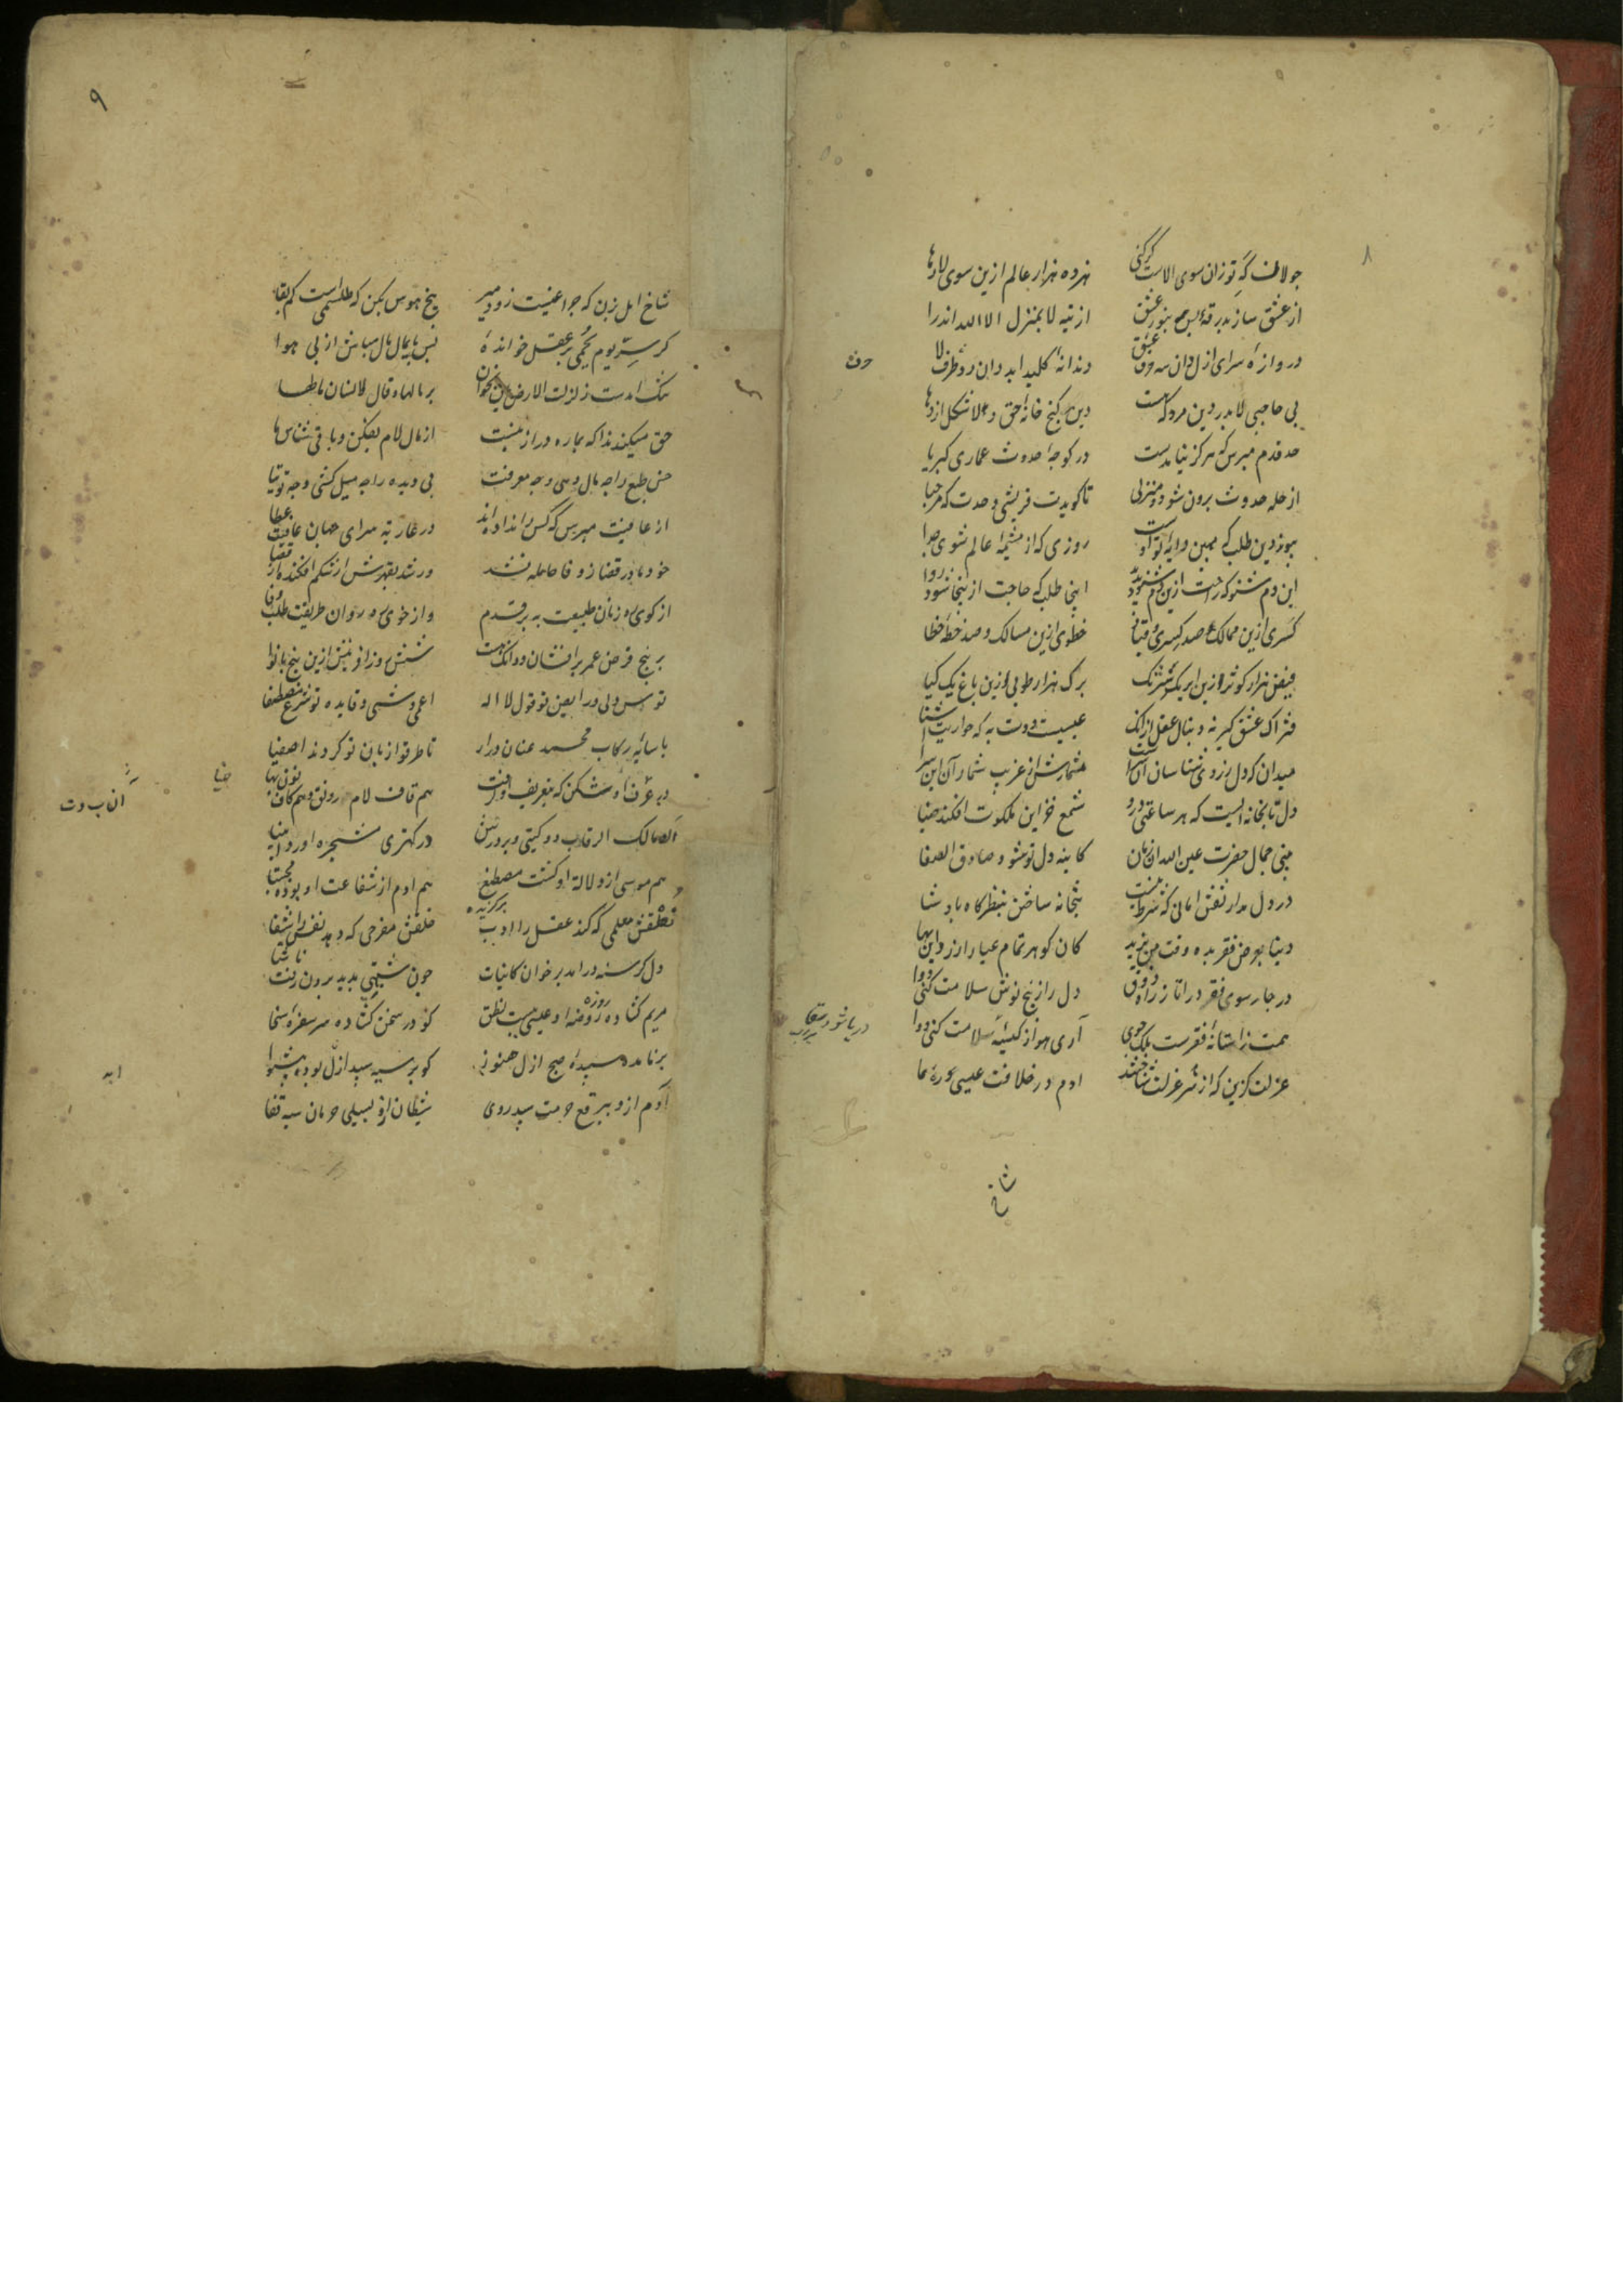 ۸
جولان گه تو زان سوی الاست گر کنی
هژده هزار عالم ازین سوی لا رها
از عشق ساز بدرقه پس هم بنور عشق
از تیه لا بمنزل الا الله اندرا
دروازه سرای ازل دان سه حرف عشق
دندانه کلید ابد دان دو حرف لا
حرف
بی حاجبی لا بدر دین مرو که هست
دین گنج خانه حق و لا شکل اژدها
حد قدم مپرس که هرگز نیامدست
در کوچه حدوث عماری کبریا
از حله حدوث برون شو دو منزلی
تا گویدت قریشی وحدت که مرحبا
پیوند دین طلب که مهین دایه تو اوست
روزی که از مشیمه عالم شوی جدا
این دم شنو که راحت ازین دم شود پدید
اینجا طلب که حاجت ازینجا شود روا
کسری ازین ممالک و صد کسری و قباد
خطوی ازین مسالک و صد خطه خطا
فیض هزار کوثر و زین ابر یک سرشک
برگ هزار طوبی و زین باغ یک گیا
فتراک عشق گیر نه دنبال عقل از انک
عیسیت دوست به که حواریت آشنا
میدان که دل ز روی شناسان آن سراست
مشمارش از غریب شمار آن این سرا
دل تابخانه ایست که هر ساعتی درو
شمع خزاین ملکوت افکند ضیا
بینی جمال حضرت عین الله آن زمان
کاینه دل تو شود صادق الصفا
در دل مدار نقش امانی که شرط نیست
بتخانه ساختن بنظرگاه پادشا
دنیا بعرض فقر بده وقت من یزید
کان گوهر تمام عیار ارزد این بها
در چارسوی فقر درا تا ز راه ذوق
دل را ز پنج نوش سلامت کنی دوا
همت ز آستانه فقرست ملک جوی
آری هوا ز کیسه
عزلت گزین که از سر عزلت شناختند
ادم در خلافت عیسی ره سما
شاخ
۹
شاخ امل بزن که چراغیست زود میر
بیخ هوس بکن که طلسمی است کم بقا
گر سر یوم یحمی بر عقل خوانده
پس پایمال مال مباش از پی هوا
تنگ امدست زلزلت الارض هین بخوان
بر مالها و قال الانسان مالها
حق میکند ندا که بما ره دراز نیست
از مال لام بفکن و باقی شناس ما
خس طبع را چه مال دهی و چه معرفت
بی دیده را چه میل کشی و چه توتیا
از عافیت مپرس که کس را نداده اند
در عاریه سرای جهان عافیت عطا
خود مادر قضا ز وفا حامله نشد
ور شد بقهرش از شکم افکند هم قضا
از کوی ره زنان طبیعت ببر قدم
و از خوی ره روان طریقت طلب وفا
بر پنج فرض عمر برافشان و دان که هست
شش روز آفرینش ازین پنج با نوا
توسن دلی و رایض تو قول لا اله
اعمی وشی و قاید تو شرع مصطفا
با سایه رکاب محمد عنان درار
تا طرقوا زنان تو گردند اصفیا
هم قاف لام رونق و هم کاف نون بها
آن مالک الرقاب دو گیتی و بر درش
در کهتری مشجره آورده انبیا
هم موسی از دلالت او گشت مصطنع
هم ادم از شفاعت او بوده مجتبا
برگزیده
نطقش معلمی که کند عقل را ادب
خلقش مفرحی که دهد نفس را شفا
دل گرسنه درامد بر خوان کاینات
چون شبهتی بدید برون رفت ناشتا
مریم گشاده روزه و عیسی ببسته نطق
کو در سخن گشاده سر سفره سخا
بر نامده سپیده صبح ازل هنوز
کو بر سیه سپید ازل بوده پیشوا
آدم ازو ببرقع حرمت سپید روی
شیطان ازو بسیلی حرمان سیه قفا